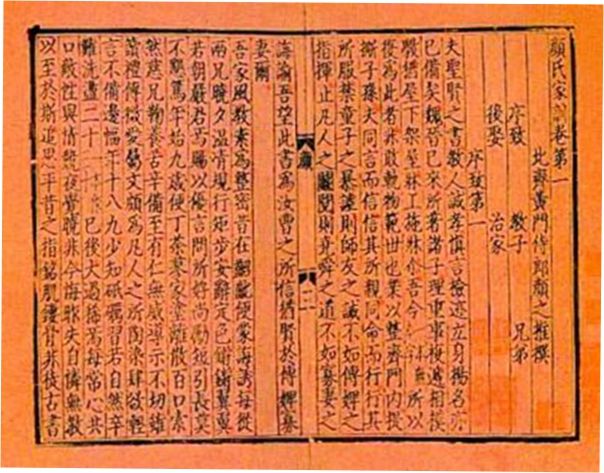 顏氏家訓卷第一
北齊黃門侍郎顏之推撰
序致 教子 兄弟
後娶 治家
序致第一
夫聖賢之書教人誠孝慎言檢迹立身揚名亦
已備矣魏晉已來所著諸子理重事複遞相模
斆猶屋下架屋牀上施牀尒吾今所以
復為此者非敢軌物範世也業以整齊門內提
撕子孫夫同言而信信其所親同命而行行其
所服禁童子之暴謔則師友之誡不如傅婢之
指揮止凡人之鬬鬩則堯舜之道不如寡妻之
誨諭吾望此書為汝曹之所信猶賢於傅婢寡
妻爾
吾家風教素為整密昔在齠齔便蒙誨誘每從
兩兄曉夕溫凊規行矩步安辭定色鏘鏘翼翼
若朝嚴君焉賜以優言問所好尚勵短引長莫
不懇篤年始九歲便丁荼蓼家塗離散百口索
然慈兄鞠養苦辛備至有仁無威導示不切雖
讀禮傳微愛屬文頗為凡人之所陶染肆欲輕
言不備邊幅年十八九少知砥礪習若自然卒
難洗盪二十已後大過稀焉每常心共
口敵性與情競夜覺曉非今悔昨失自憐無教
以至於斯追思平昔之指銘肌鏤骨非徒古書